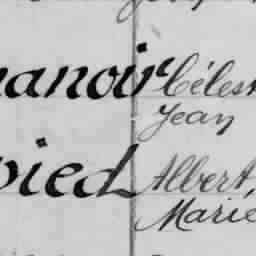 anoir Céles
Jean
pied Albert,
Marie